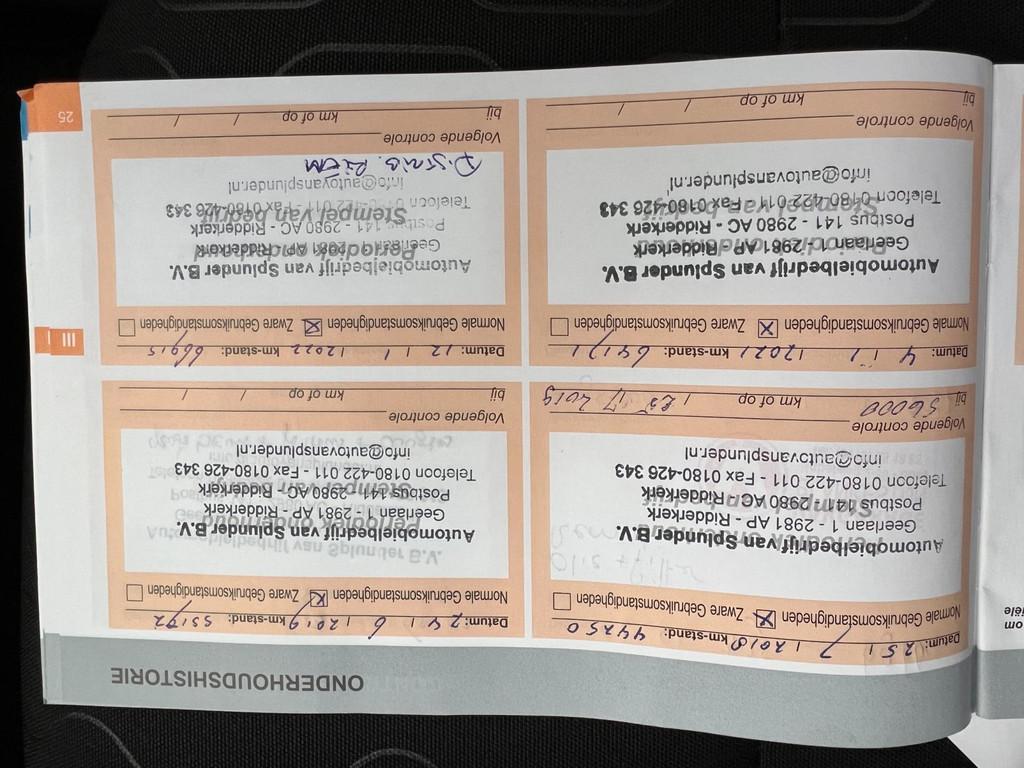 ONDERHOUDSHISTORIE
Datum: 25 / 7 / 2018 km-stand: 44250
Normale Gebruiksomstandigheden ☒ Zware Gebruiksomstandigheden ☐
Olie + filter
Automobielbedrijf van Splunder B.V.
Periodiek onderhoud
Geerlaan 1 - 2981 AP - Ridderkerk
Stempel van bedrijf
Postbus 141 - 2980 AC - Ridderkerk
Telefoon 0180-422 011 - Fax 0180-426 343
info@autovansplunder.nl
Volgende controle
bij 56000 km of op / 25 / 7 2019
Datum: 24 / 6 / 2019 km-stand: 55172
Normale Gebruiksomstandigheden ☒ Zware Gebruiksomstandigheden ☐
Automobielbedrijf van Splunder B.V.
Automobielbedrijf van Splunder B.V.
Periodiek onderhoud
Geerlaan 1 - 2981 AP - Ridderkerk
Stempel van bedrijf
Postbus 141 - 2980 AC - Ridderkerk
Telefoon 0180-422 011 - Fax 0180-426 343
info@autovansplunder.nl
Volgende controle
bij km of op / /
Datum: 4 / 11 / 2021 km-stand: 64171
Normale Gebruiksomstandigheden ☒ Zware Gebruiksomstandigheden ☐
Automobielbedrijf van Splunder B.V.
Periodiek onderhoud
Geerlaan 1 - 2981 AP - Ridderkerk
Postbus 141 - 2980 AC - Ridderkerk
Stempel van bedrijf
Telefoon 0180-422 011 - Fax 0180-426 343
info@autovansplunder.nl
Volgende controle
bij km of op / /
Datum: 12 / 1 / 2022 km-stand: 66915
Normale Gebruiksomstandigheden ☒ Zware Gebruiksomstandigheden ☐
Automobielbedrijf van Splunder B.V.
Periodiek onderhoud
Geerlaan 1 - 2981 AP - Ridderkerk
Postbus 141 - 2980 AC - Ridderkerk
Stempel van bedrijf
Telefoon 0180-422 011 - Fax 0180-426 343
info@autovansplunder.nl
Volgende controle
bij km of op / /
III
25
om